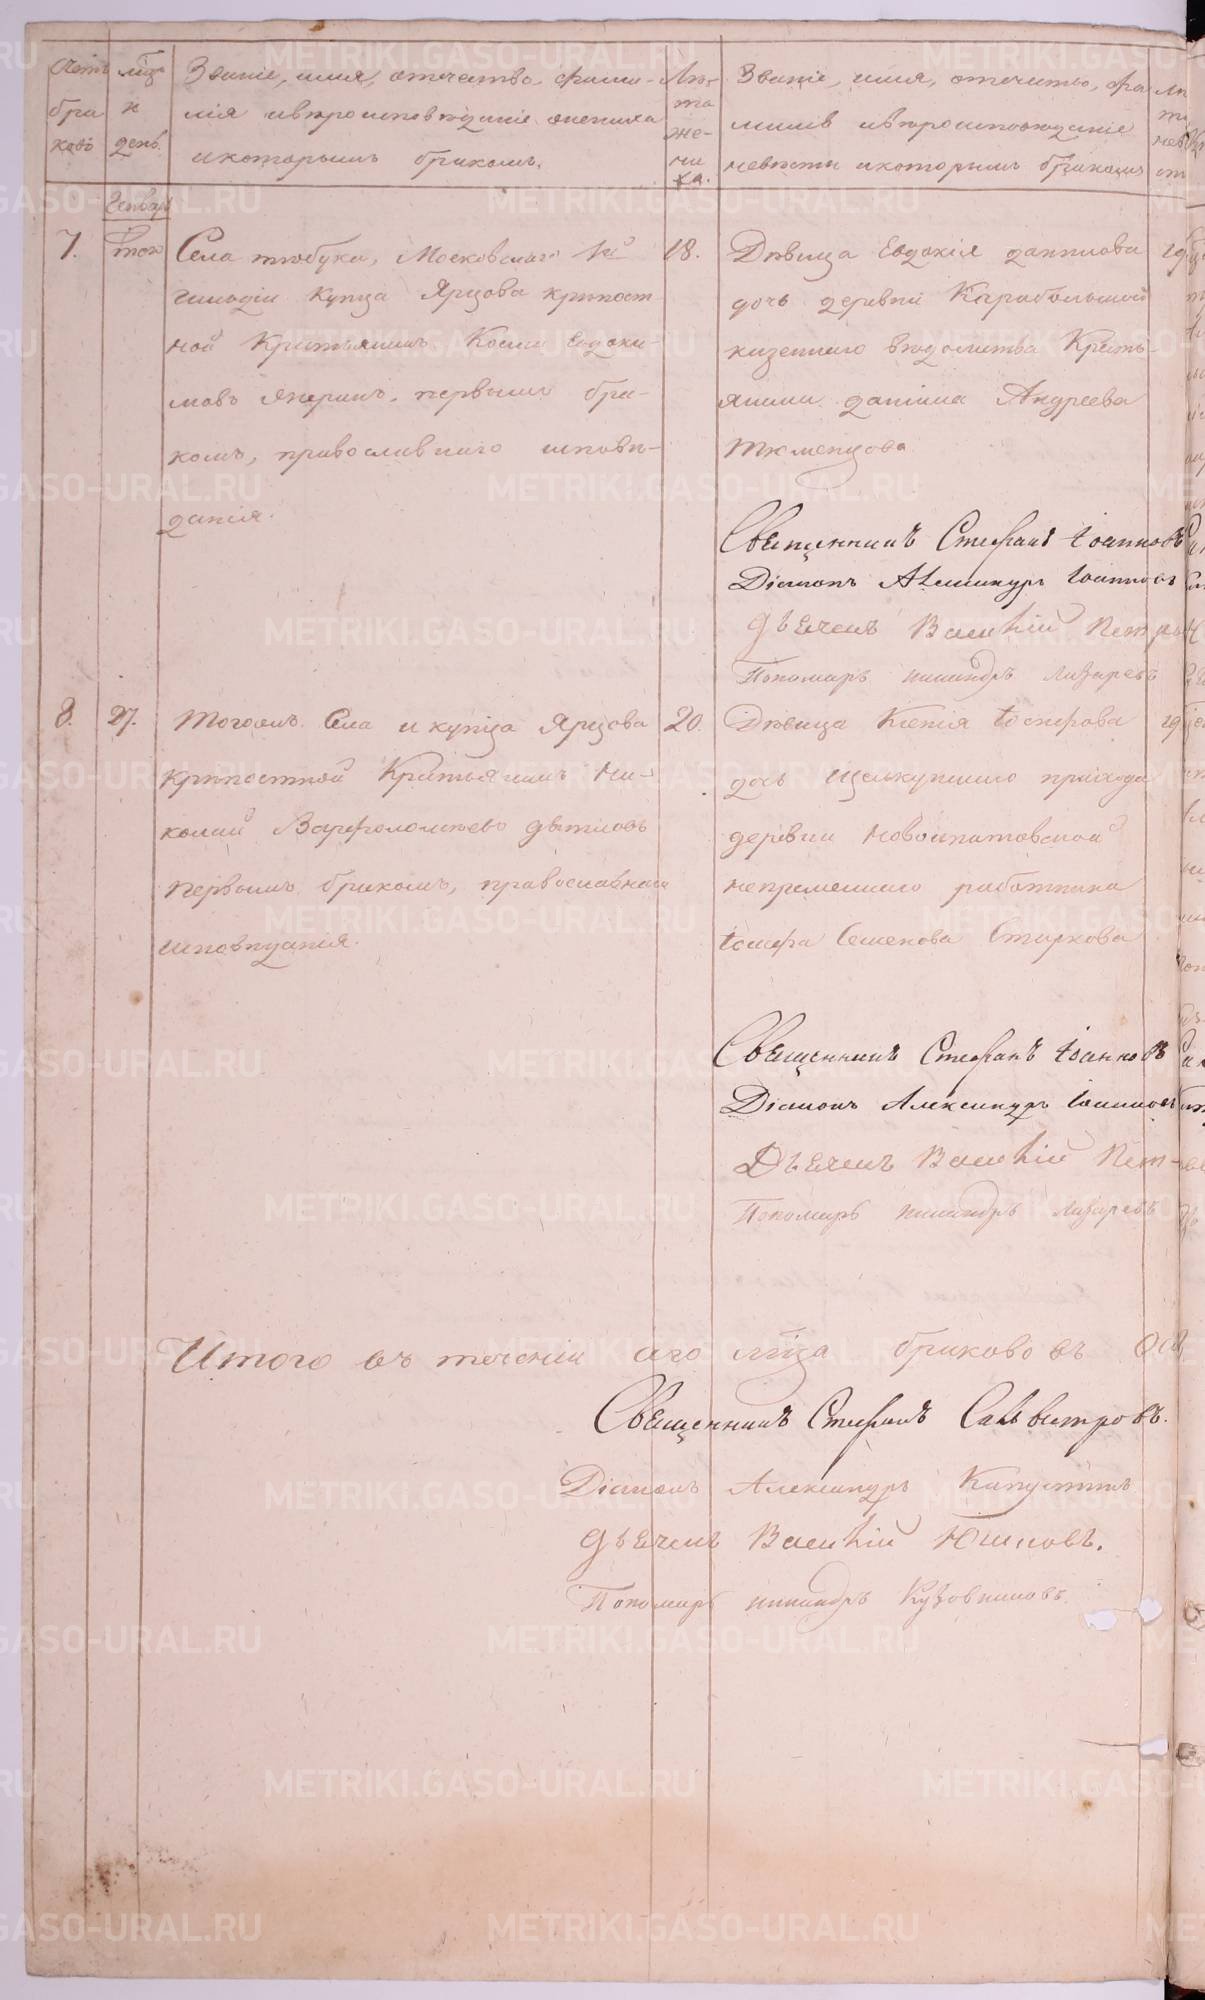 Счетъ браковъ
мѣсяц и день.
Званіе, имя, отчество, фами-
лія и вѣроисповѣданіе жениха
и которымъ бракомъ.
Лѣта жениха.
Званіе, имя, отчество, фа
милія и вѣроисповѣданіе
невѣсты и которымъ бракомъ
Генварь
7.
Села тюбука, Московскаго 1й
гильдіи Купца Ярцова крѣпост
ной Крестьянинъ Косма Евдоки-
мовъ первымъ бра-
комъ, православнаго исповѣ-
данія.
18.
Дѣвица Евдокія даниилова
дочь деревни Карабольской
казеннаго вѣдомства Кресть-
янина даніила Андреева
Тюменцова
19
Священникъ Стефанъ Іоанновъ
Діаконъ Александръ Іоанновъ
Дьячекъ Василій Петровъ
Пономарь никандръ Лазаревъ
8.
27.
Тогожъ Села и купца Ярцова
Крѣпостной Крестьянинъ Ни-
колай Варфоломѣевъ Дятловъ
первымъ бракомъ, православнаго
исповѣданія.
20.
Дѣвица Ксенія Іосифова
дочь Щелкунскаго прихода
деревни Новоипатовской
непременнаго работника
Іосифа Семенова Старкова
19
Священникъ Стефанъ Іоанновъ
Діаконъ Александръ Іоанновъ
Дьячекъ Василій Пет-
Пономарь никандръ Лазаревъ
Итого въ теченіи сего мѣсяца браковъ
Священникъ Стефанъ Сильвестровъ.
Діаконъ Александръ Капустинъ
Дьячекъ Василій Юшковъ.
Пономарь никандръ Кузовниковъ.
METRIKI.GASO-URAL.RU